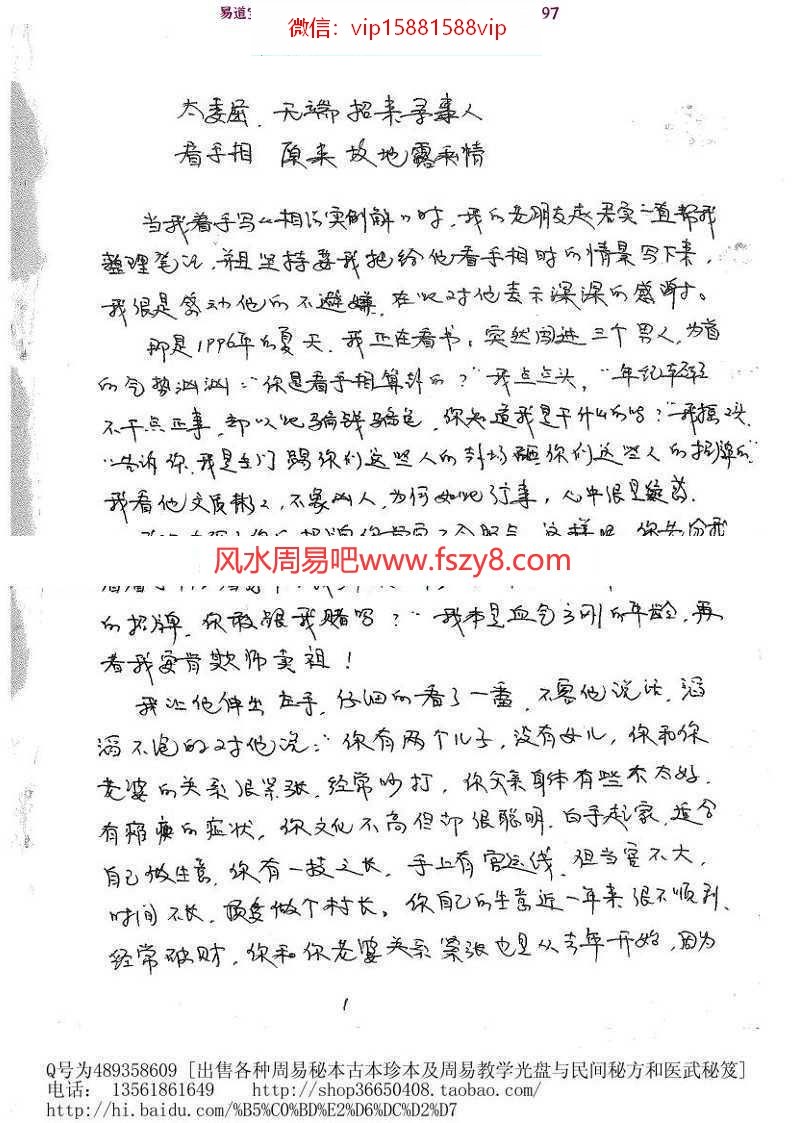 易道
97
微信：vip15881588vip
太委屈、无端招来寻事人
看手相 原来故地露私情
当我着手写《相法实例解》时，我的老朋友赵君实一直帮我
整理笔记，并且坚持要我把给他看手相时的情景写下来，
我很是感动他的不避嫌，在此对他表示深深的感谢。
那是1996年的夏天，我正在看书，突然闯进三个男人，为首
的气势汹汹：“你是看手相算卦的？”我点点头，“年纪轻轻
不干点正事，却以此骗钱骗色，你知道我是干什么的吗？”我摇头
“告诉你，我是专门踢你们这些人的卦场砸你们这些人的招牌的”
我看他文质彬彬，不象凶人，为何如此行事，心中很是疑惑。
风水周易吧www.fszy8.com
的招牌，你敢跟我赌吗？”我本是血气方刚的年龄，再
者我安肯欺师卖祖！
我让他伸出左手，仔细的看了一番，不容他说话，滔
滔不绝的对他说：“你有两个儿子，没有女儿，你和你
老婆的关系很紧张，经常吵打，你父亲身体有些不太好，
有瘫痪的症状，你文化不高但却很聪明，白手起家，适合
自己做生意，你有一技之长，手上有官运线，但当官不大，
时间不长，顶多做个村长。你自己的生意近一年来很不顺利、
经常破财，你和你老婆关系紧张也是从去年开始，因为
1
Q号为489358609 [出售各种周易秘本古本珍本及周易教学光盘与民间秘方和医武秘笈]
电话： 13561861649 http://shop36650408.taobao.com/
http://hi.baidu.com/%B5%C0%BD%E2%D6%DC%D2%D7